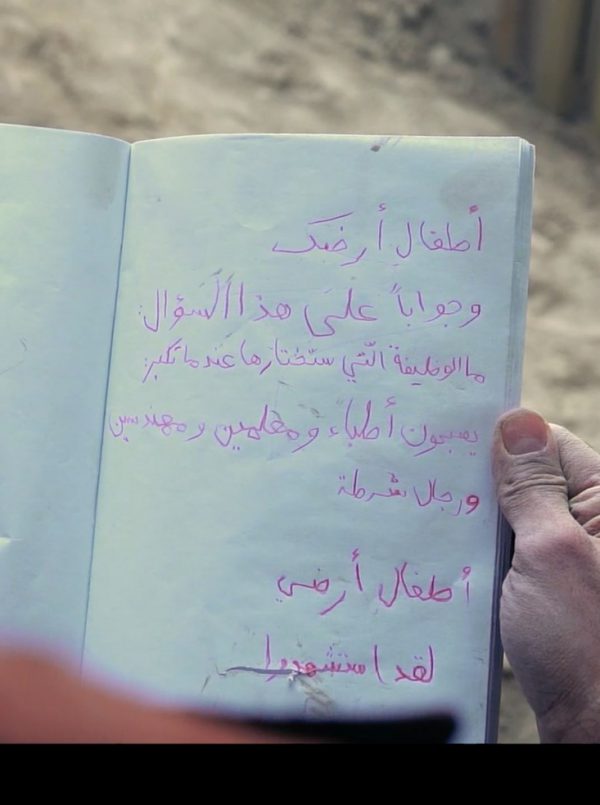 أطفال أرضك
وجواباً على هذا السؤال:
ما الوظيفة التي ستختارها عندما تكبر:
يصبحون أطباء ومعلمين ومهندسين
ورجال شرطة
أطفال أرضي
لقد استشهدوا